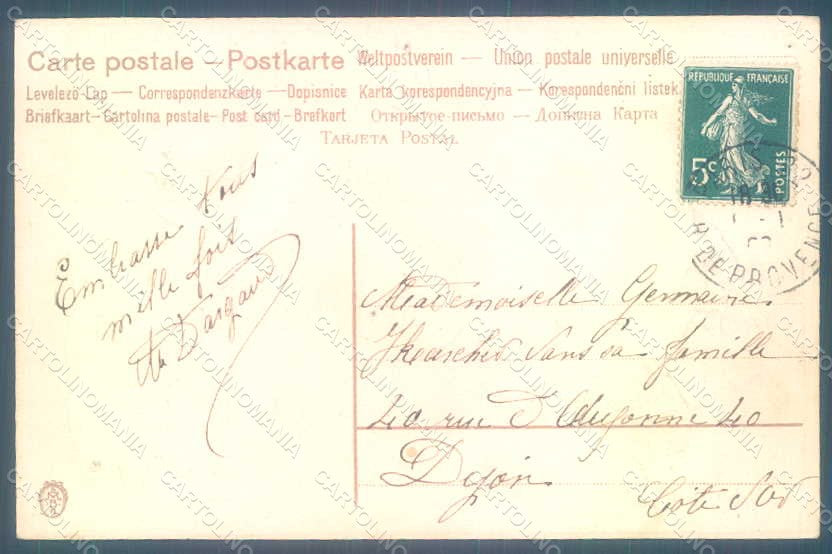 Carte postale — Postkarte Weltpostverein — Union postale universelle
Levelező-Lap — Correspondenzkarte — Dopisnice Karta korespondencyjna — Korespondenční listek
Briefkaart — Cartolina postale — Post card — Brefkort Открытое письмо — Дописна Карта
TARJETA POSTAL
RÉPUBLIQUE FRANÇAISE
5c
POSTES
R. DE PROVENCE
Embrasse Vous
mille fois
Mademoiselle Germaine
Sans sa famille
40 rue d'Auxonne 40
Dijon
Côte d'Or
CARTOLINOMANIA